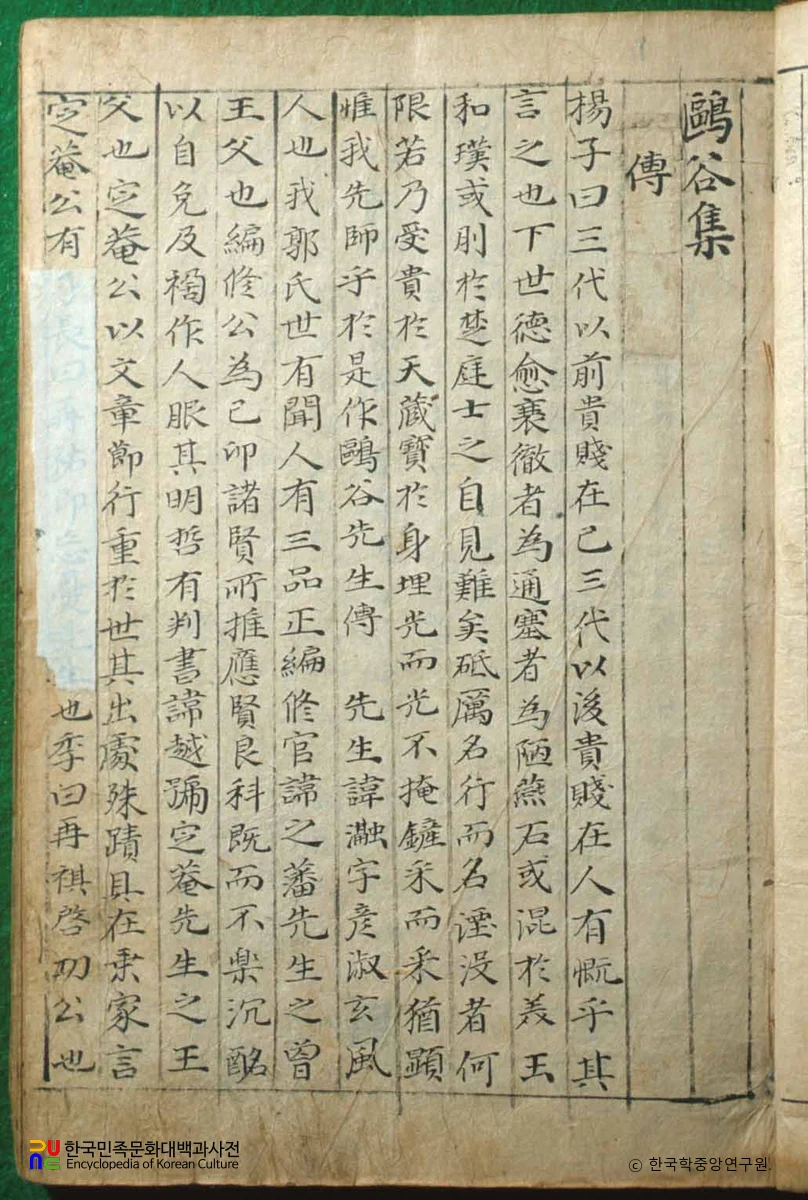 鷗谷集
傳
楊子曰三代以前貴賤在己三代以後貴賤在人有慨乎其
言之也下世德愈衰徹者為通塞者為陋燕石或混於美玉
和璞或刖於楚庭士之自見難矣砥厲名行而名湮没者何
限若乃受貴於天藏寶於身埋光而光不掩鏟采而采猶顯
惟我先師乎於是作鷗谷先生傳 先生諱瀜字彦淑玄風
人也我郭氏世有聞人有三品正編修官諱之藩先生之曾
王父也編修公為己卯諸賢所推應賢良科既而不樂沉酩
以自免及禍作人服其明哲有判書諱越號定菴先生之王
父也定菴公以文章節行重於世其出處殊蹟具在乘家言
定菴公有
長曰再祐即
也季曰再祺啓功公也
한국민족문화대백과사전
Encyclopedia of Korean Culture
© 한국학중앙연구원.